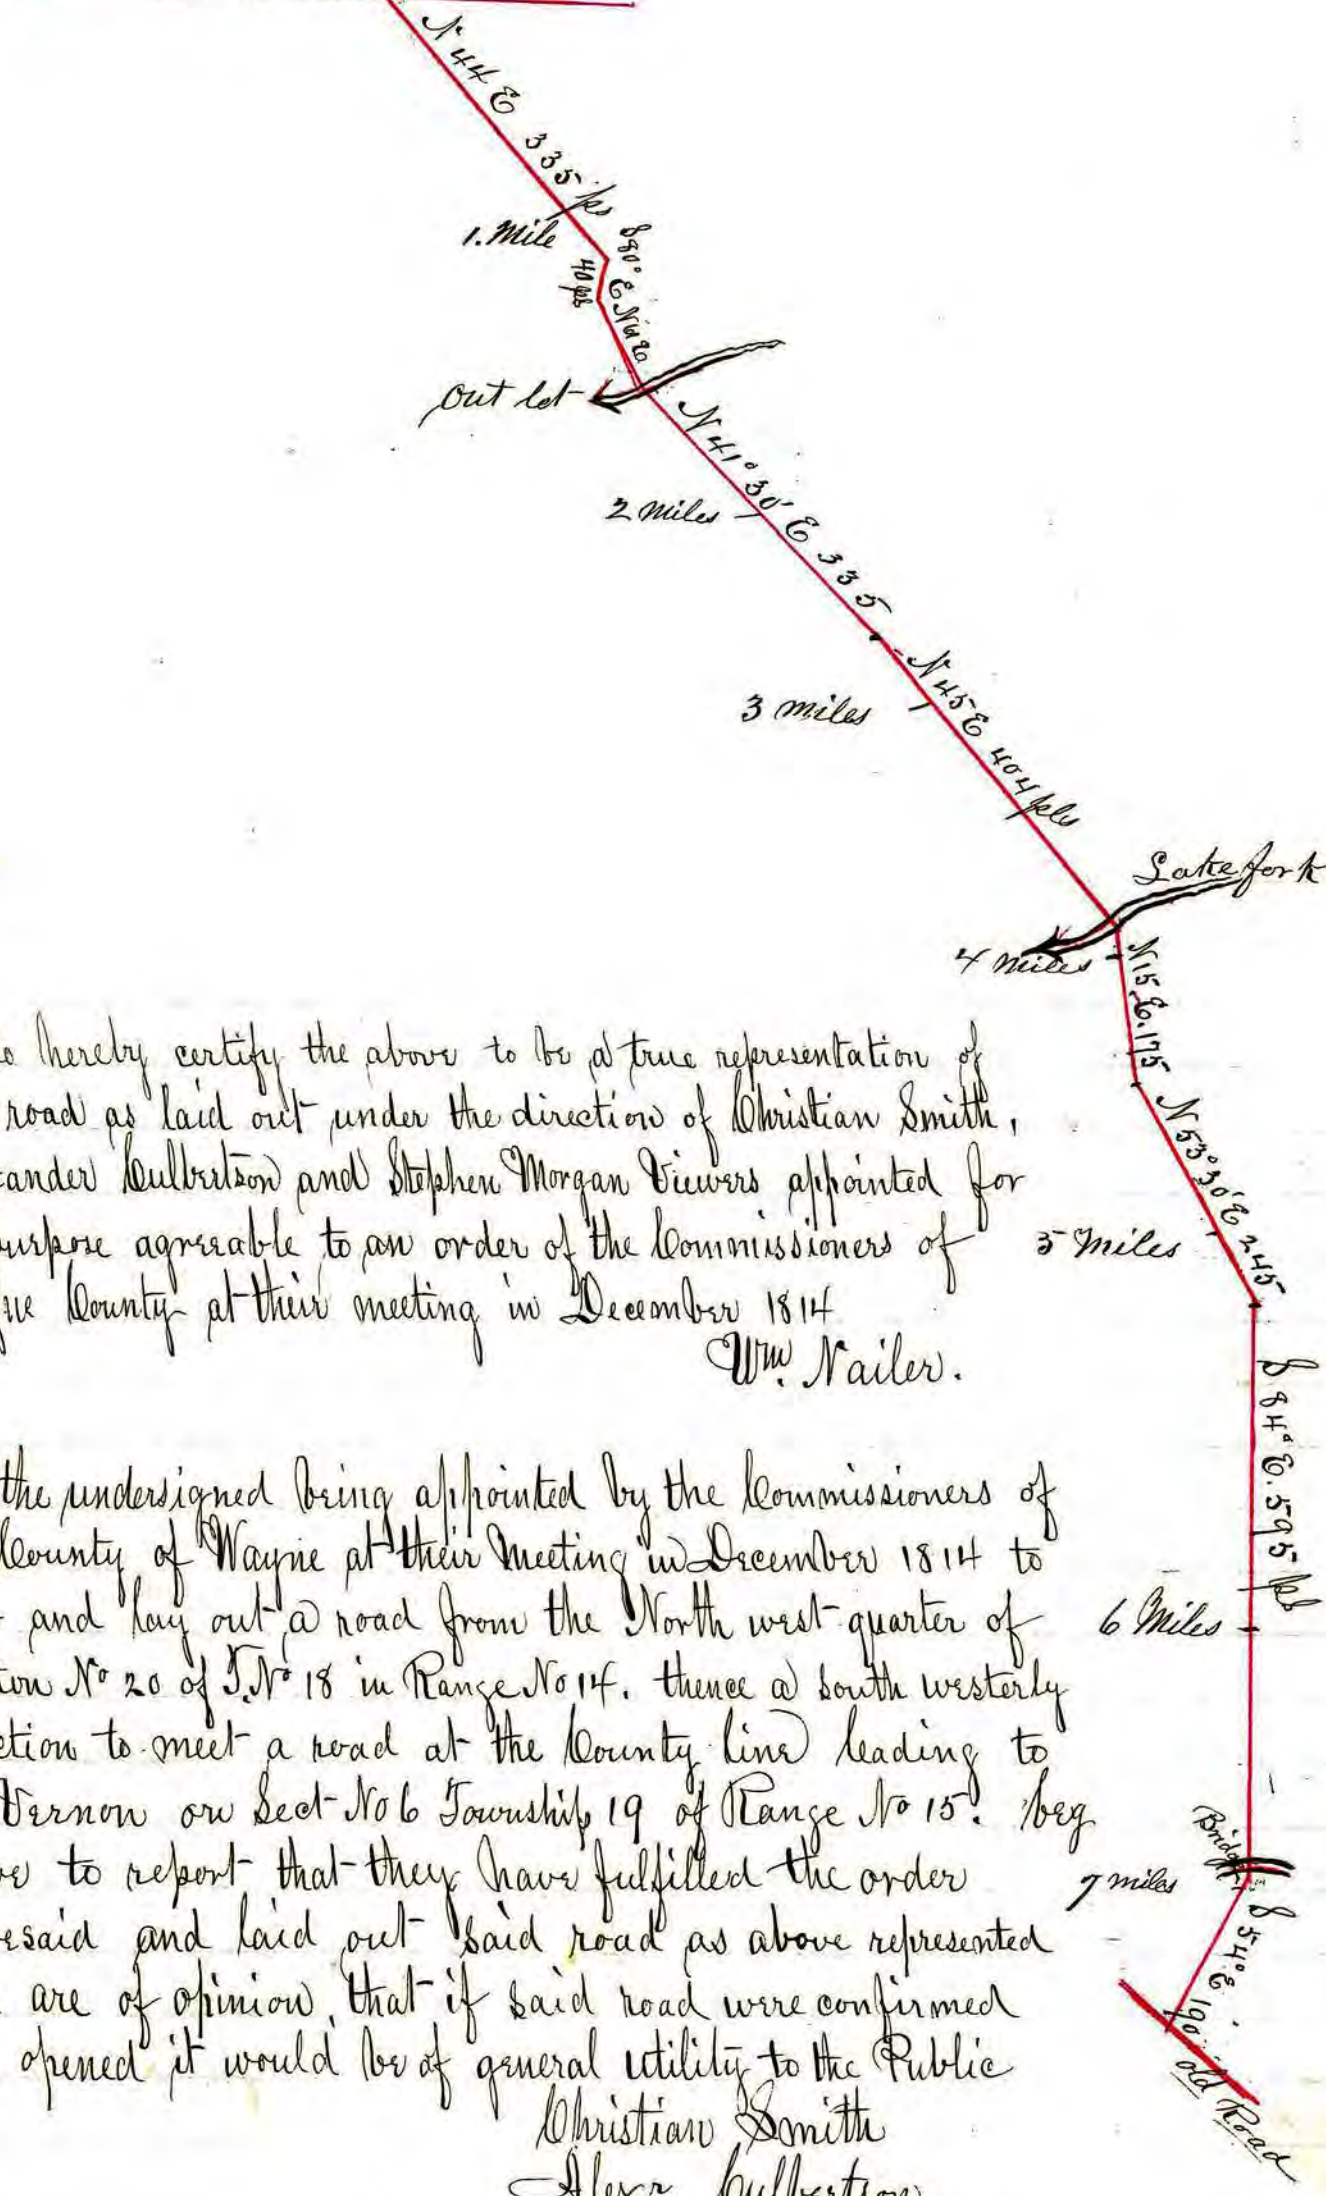 N 44 E 335 ps
1. Mile
S 80° E
40 ps
out let
N 41° 30' E 335
2 Miles
N 45 E 404 pls
3 miles
Lake fork
4 Miles
N 15 E. 175
N 53° 30' E 245
5 Miles
S 84° E. 595 ps
6 Miles
Bridge
7 miles
S 54° E. 190
old Road
hereby certify the above to be a true representation of
road as laid out under the direction of Christian Smith,
ander Culbertson and Stephen Morgan Viewers appointed for
urpose agreeable to an order of the Commissioners of
ne County at their meeting in December 1814
Wm. Nailer.
the undersigned being appointed by the Commissioners of
County of Wayne at their Meeting in December 1814 to
and lay out a road from the North west quarter of
ion No 20 of T. No 18 in Range No 14. thence a South westerly
ction to meet a road at the County line leading to
Vernon on Sect No 6 Township 19 of Range No 15. beg
ve to report that they have fulfilled the order
esaid and laid out said road as above represented
are of opinion, that if said road were confirmed
opened it would be of general utility to the Public
Christian Smith
Alexr Culbertson